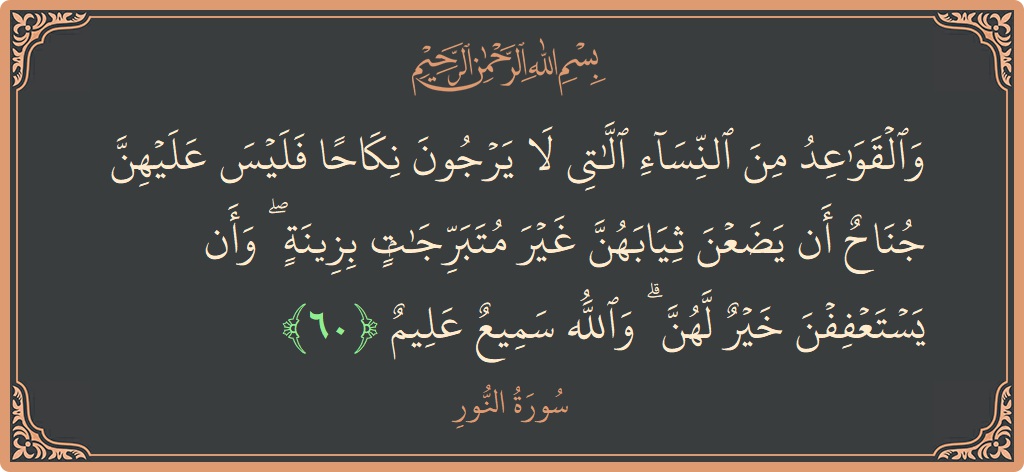 بِسْمِ اللهِ الرَّحْمٰنِ الرَّحِيْمِ
وَٱلْقَوَٰعِدُ مِنَ ٱلنِّسَآءِ ٱلَّٰتِى لَا يَرْجُونَ نِكَاحًا فَلَيْسَ عَلَيْهِنَّ
جُنَاحٌ أَن يَضَعْنَ ثِيَابَهُنَّ غَيْرَ مُتَبَرِّجَٰتٍۭ بِزِينَةٍ ۖ وَأَن
يَسْتَعْفِفْنَ خَيْرٌ لَّهُنَّ ۗ وَٱللَّهُ سَمِيعٌ عَلِيمٌ ﴿٦٠﴾
سُورَةُ النُّورِ